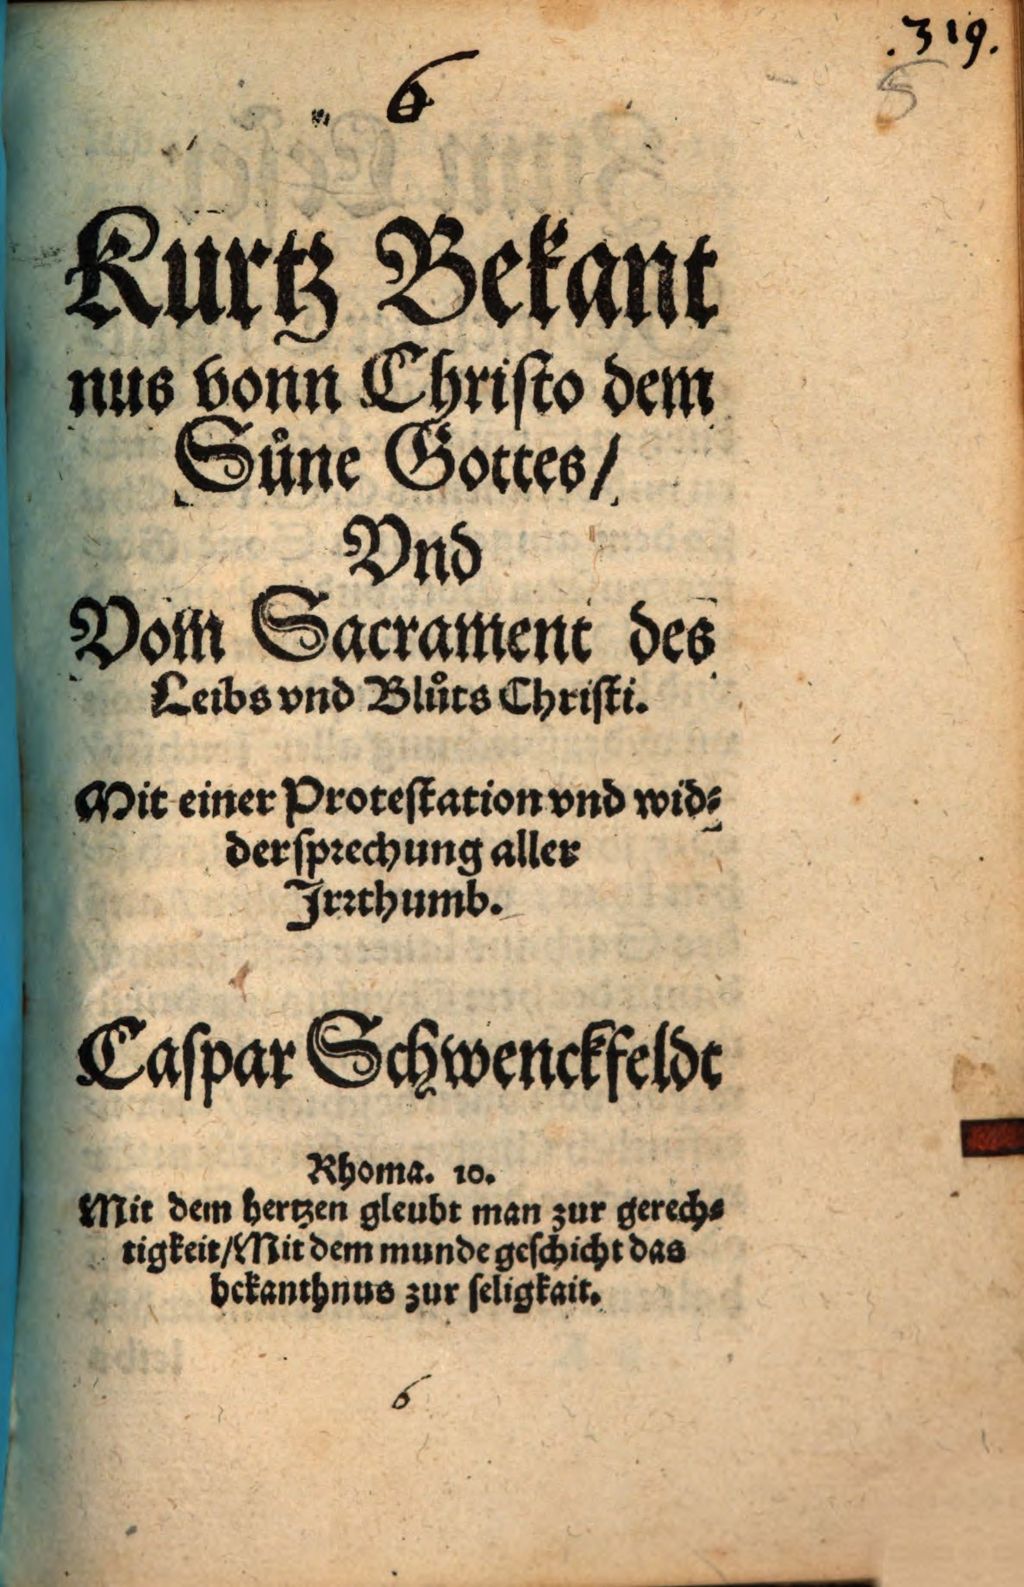 .319.
6
5
Kurtz Bekant
nus vonn Christo dem
Sůne Gottes/
Vnd
Vom Sacrament des
Leibs vnd Blůts Christi.
Mit einer Protestation vnd wid⸗
dersprechung aller
Irrthumb.
Caspar Schwenckfeldt
Rhoma. 10.
Mit dem hertzen gleubt man zur gerech⸗
tigkeit/Mit dem munde geschicht das
bekanthnus zur seligkait.
6